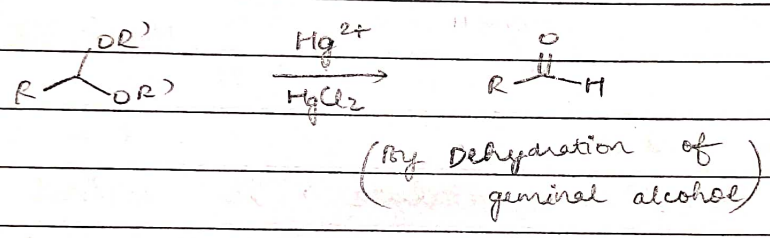 OR'
Hg²⁺
O
R
OR'
HgCl₂
R
H
(By Dehydration of
geminal alcohol)